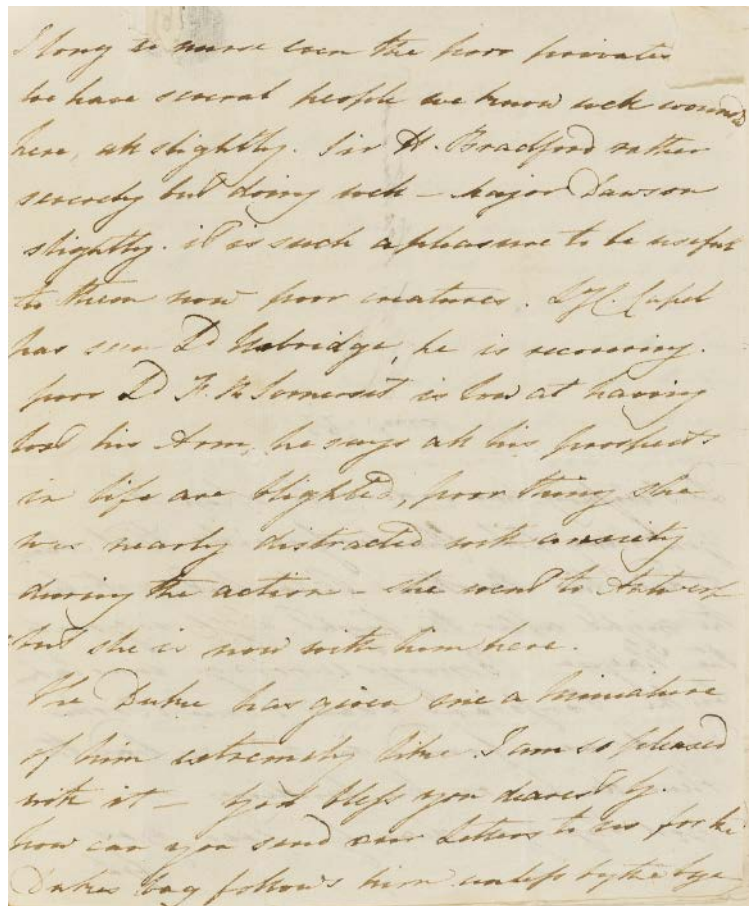 I long to nurse even the poor privates
We have several people we know well wounded
here, all slightly. Sir H. Bradford rather
severely but doing well – Major Dawson
slightly. it is such a pleasure to be useful
to them now poor creatures. Capel
has seen Ld Uxbridge, he is recovering.
poor Ld F. Somerset is low at having
lost his Arm, he says all his prospects
in life are blighted, poor thing she
was nearly distracted with anxiety
during the action – she went to Antwerp
but she is now with him here.
The Duke has given me a miniature
of him extremely like I am so pleased
with it – God bless you dearest G.
how can you send our Letters to us for the
Dukes bag follows him unless by the bye